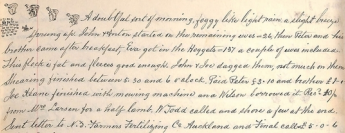 A doubtful sort of morning, foggy like light rain a slight breeze
Young up. John & Anton started on the remaining ewes - 26, then Peter and his
brother came after breakfast, & we got in the Hoggets - 137 a couple of wes included
This fleece & fat and fleeces good enough. John & Joe dagged them, not much on them
Shearing finished between 5-30 and 6 o'clock. Paid Peter £3-10 and brother £2-
Joe Keane finished with mowing machine and Wilson borrowed it. Rec'd
from Mr Larsen for a half lamb. W. Todd called and shore a few at the end.
Sent letter to N.Z. Farmers Fertilizing Co Auckland and Final called £ - 0 - 6